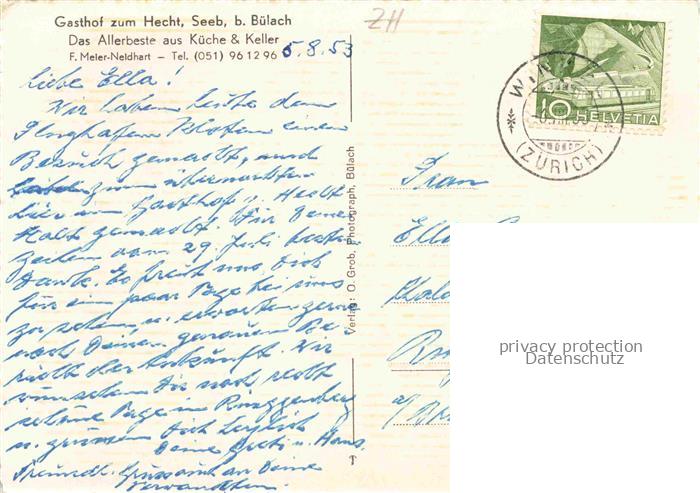 Gasthof zum Hecht, Seeb, b. Bülach
Das Allerbeste aus Küche & Keller
F. Meier-Neldhart – Tel. (051) 96 12 96
5.8.53
ZH
Liebe Ella!
Wir haben heute dem
Flughafen Kloten einen
Besuch gemacht, und
zum übernachten
hier im Gasthof z. Hecht
Halt gemacht. Wir Deine
Zeilen vom 29. Juli besten
Dank. Es freut uns Dich
für ein paar Tage bei uns
zu sehen, u. erwarten gerne
noch Deinen genauen Be-
richt der Ankunft. Wir
wünschen Dir noch recht
schöne Tage in Ringgenberg
u. grüssen Dich herzlich
Deine u. Hans.
Freundl. Grüsse an Deine
Verwandten.
Verlag: O. Grob, Photograph, Bülach
10 HELVETIA
(ZÜRICH)
Frau
Ella
privacy protection
Datenschutz